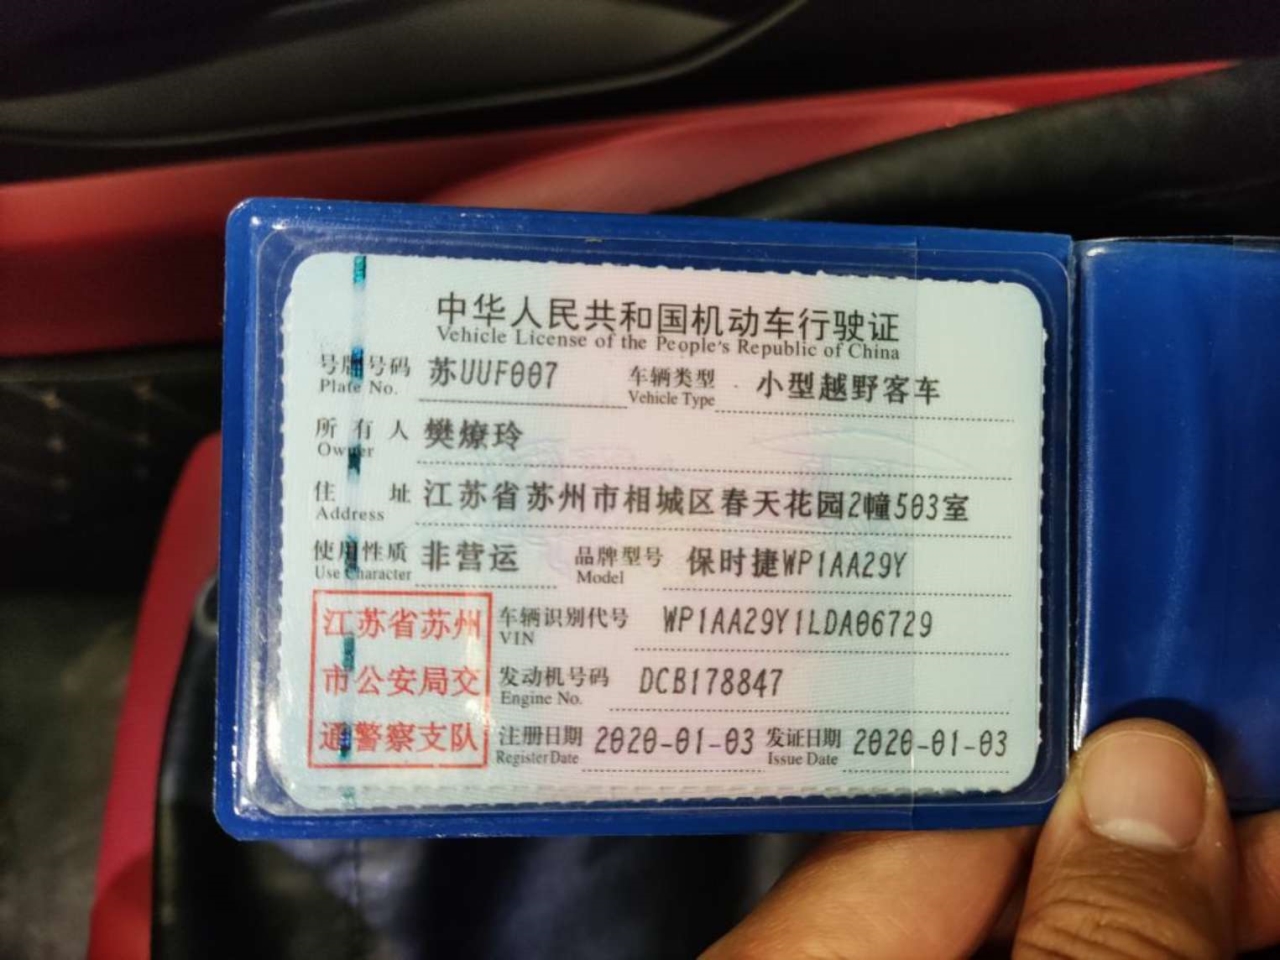 中华人民共和国机动车行驶证
Vehicle License of the People's Republic of China
号牌号码 苏UUF007 车辆类型 小型越野客车
Plate No. Vehicle Type
所有人 樊燎玲
Owner
住址 江苏省苏州市相城区春天花园2幢503室
Address
使用性质 非营运 品牌型号 保时捷WP1AA29Y
Use Character Model
江苏省苏州 车辆识别代号 WP1AA29Y1LDA06729
VIN
市公安局交 发动机号码 DCB178847
Engine No.
通警察支队 注册日期 2020-01-03 发证日期 2020-01-03
Register Date Issue Date